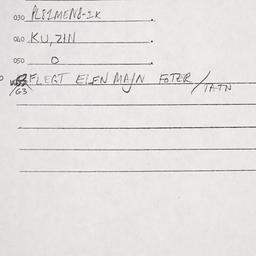 030 PLØ1MENG-2K.
040 KU, ZIN.
050 O.
FLEGT EIEN MAJN FOTER / TATN
63